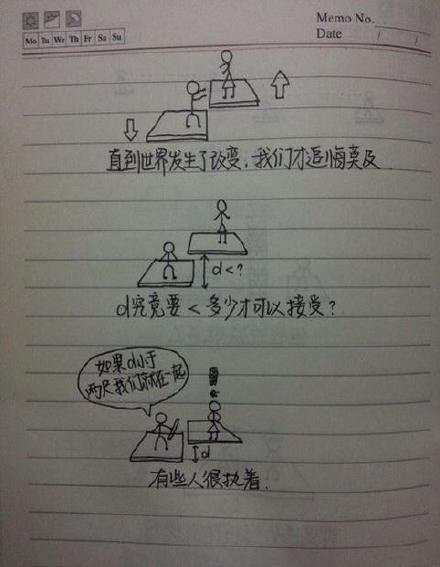 Memo No.
Mo Tu We Th Fr Sa Su
Date / /
直到世界发生了改变，我们才追悔莫及
d<?
d究竟要<多少才可以接受？
如果d小于
两尺我们就在一起
d
有些人很执着.